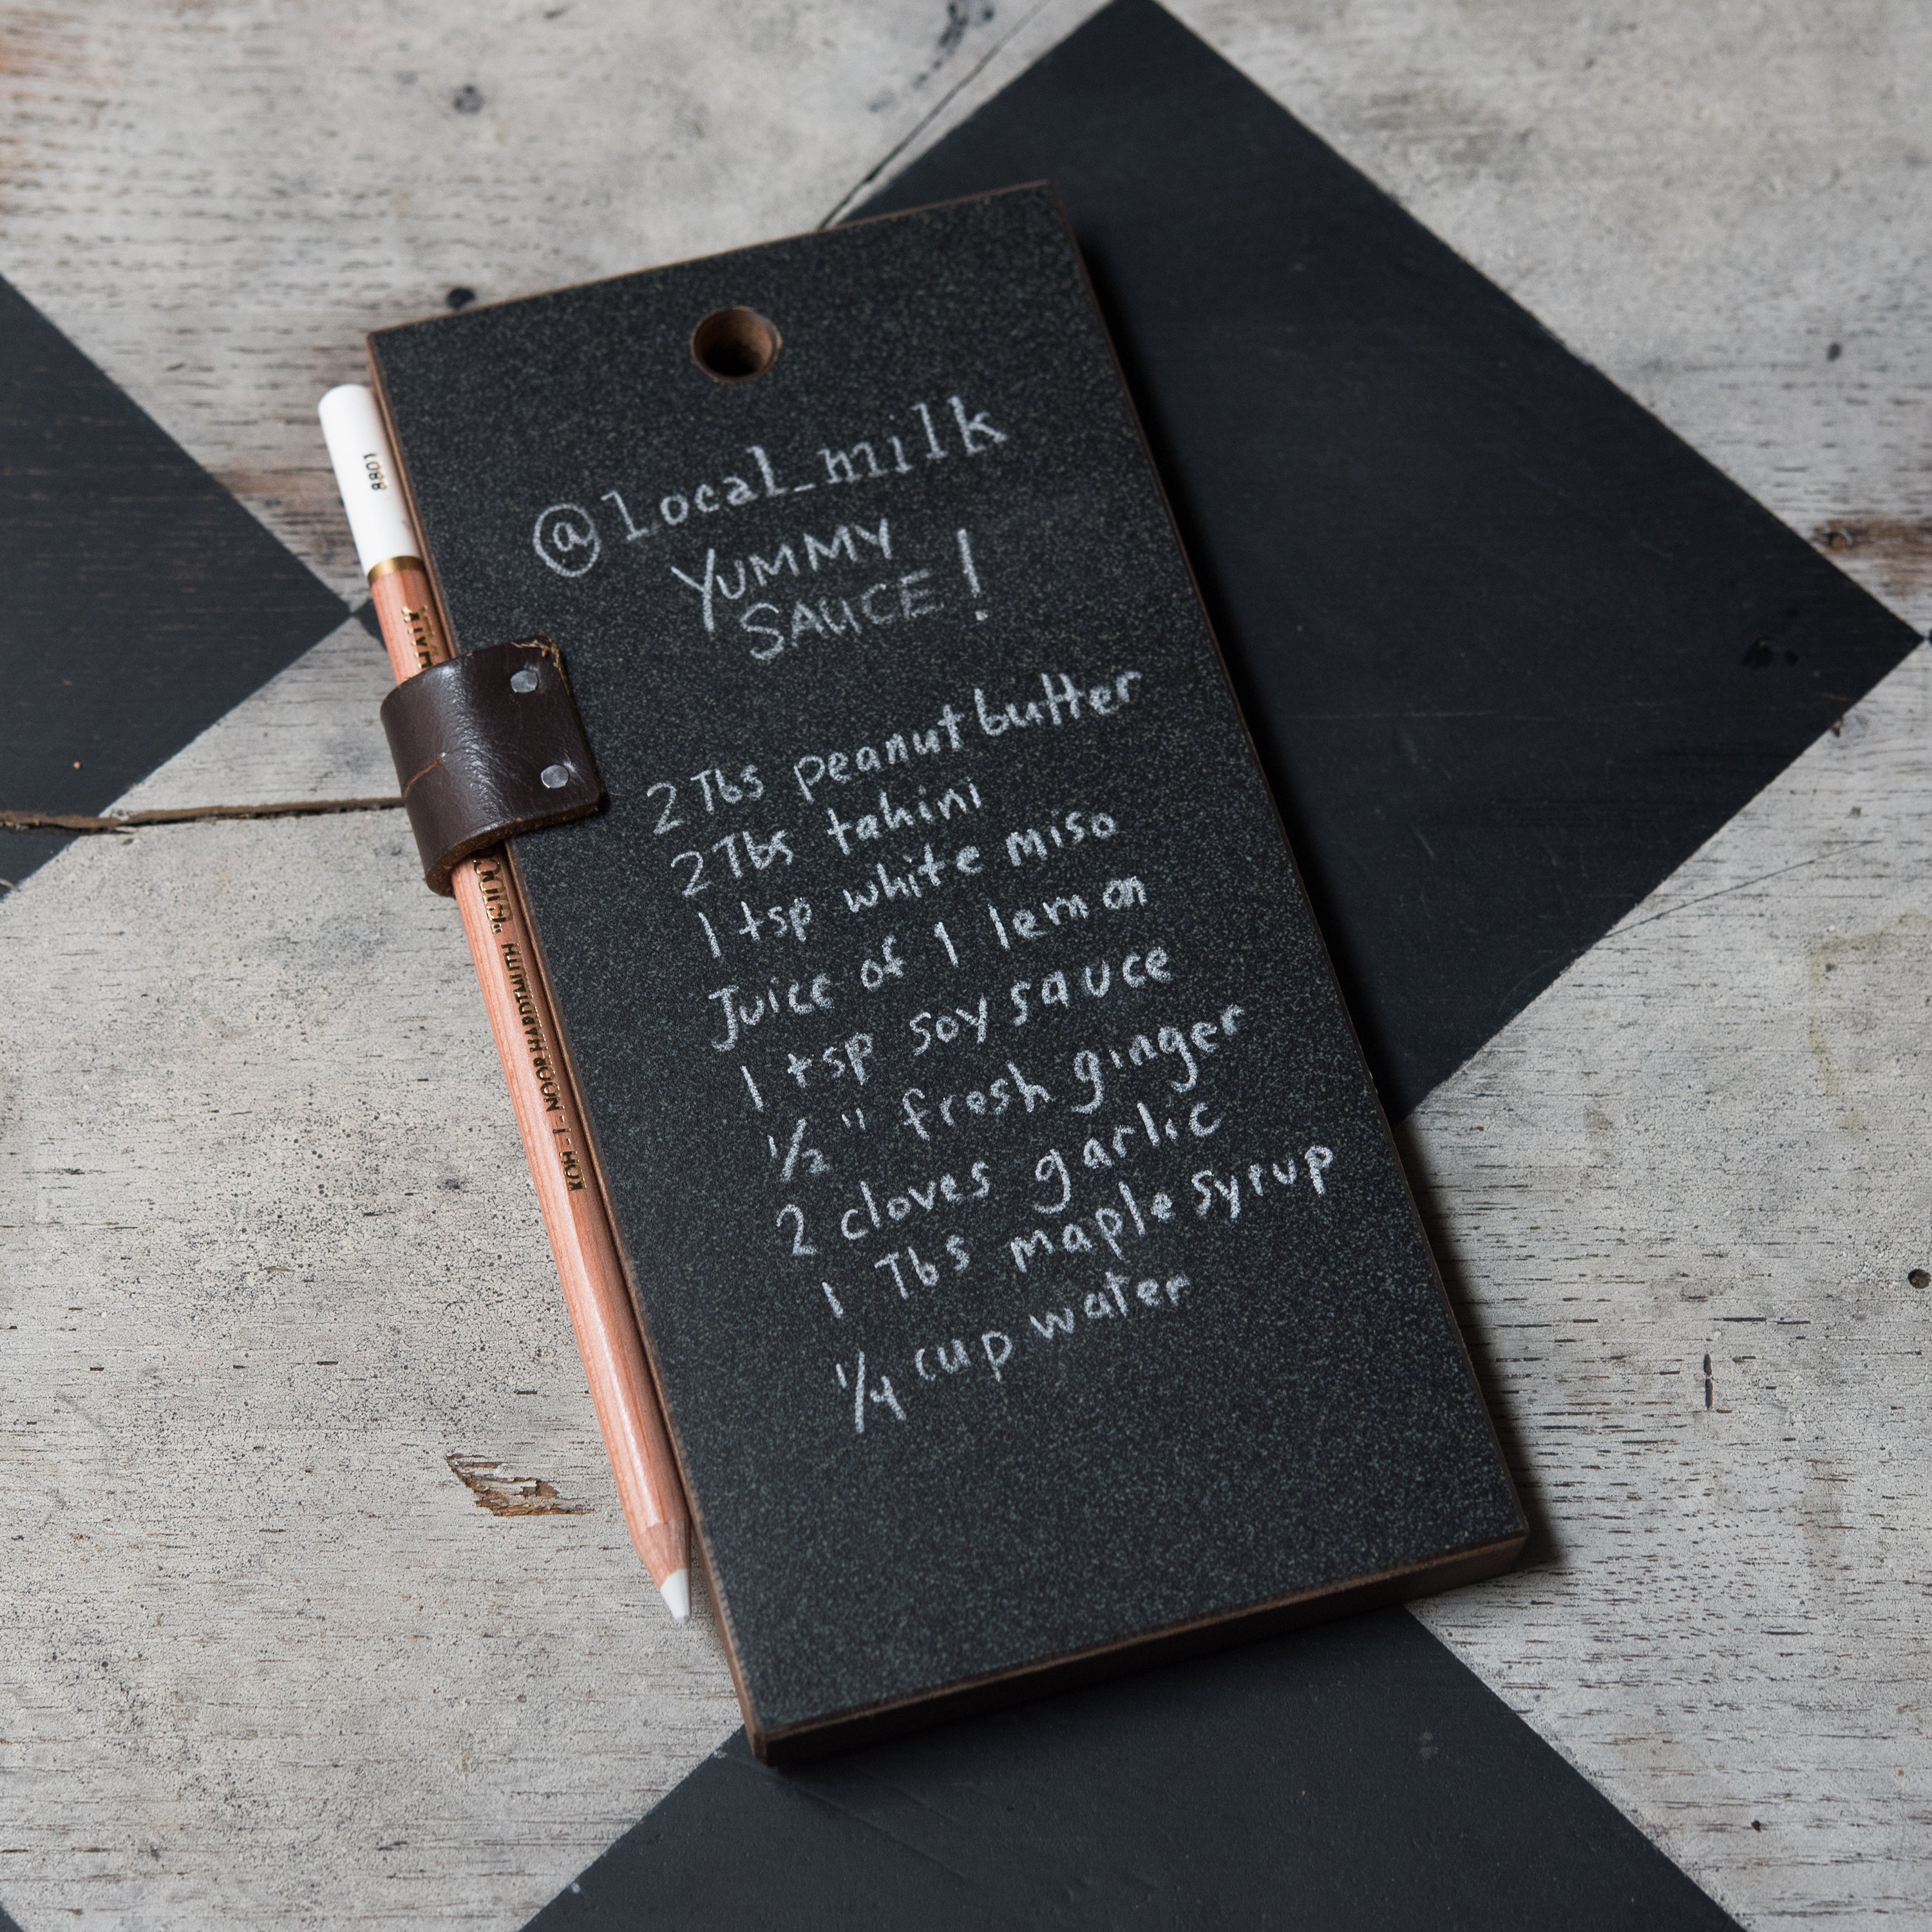 @local_milk
YUMMY
SAUCE!
2 Tbs peanut butter
2 Tbs tahini
1 tsp white miso
Juice of 1 lemon
1 tsp soy sauce
1/2" fresh ginger
2 cloves garlic
1 Tbs maple syrup
1/4 cup water
8801
KOH-I-NOOR HARDTMUTH